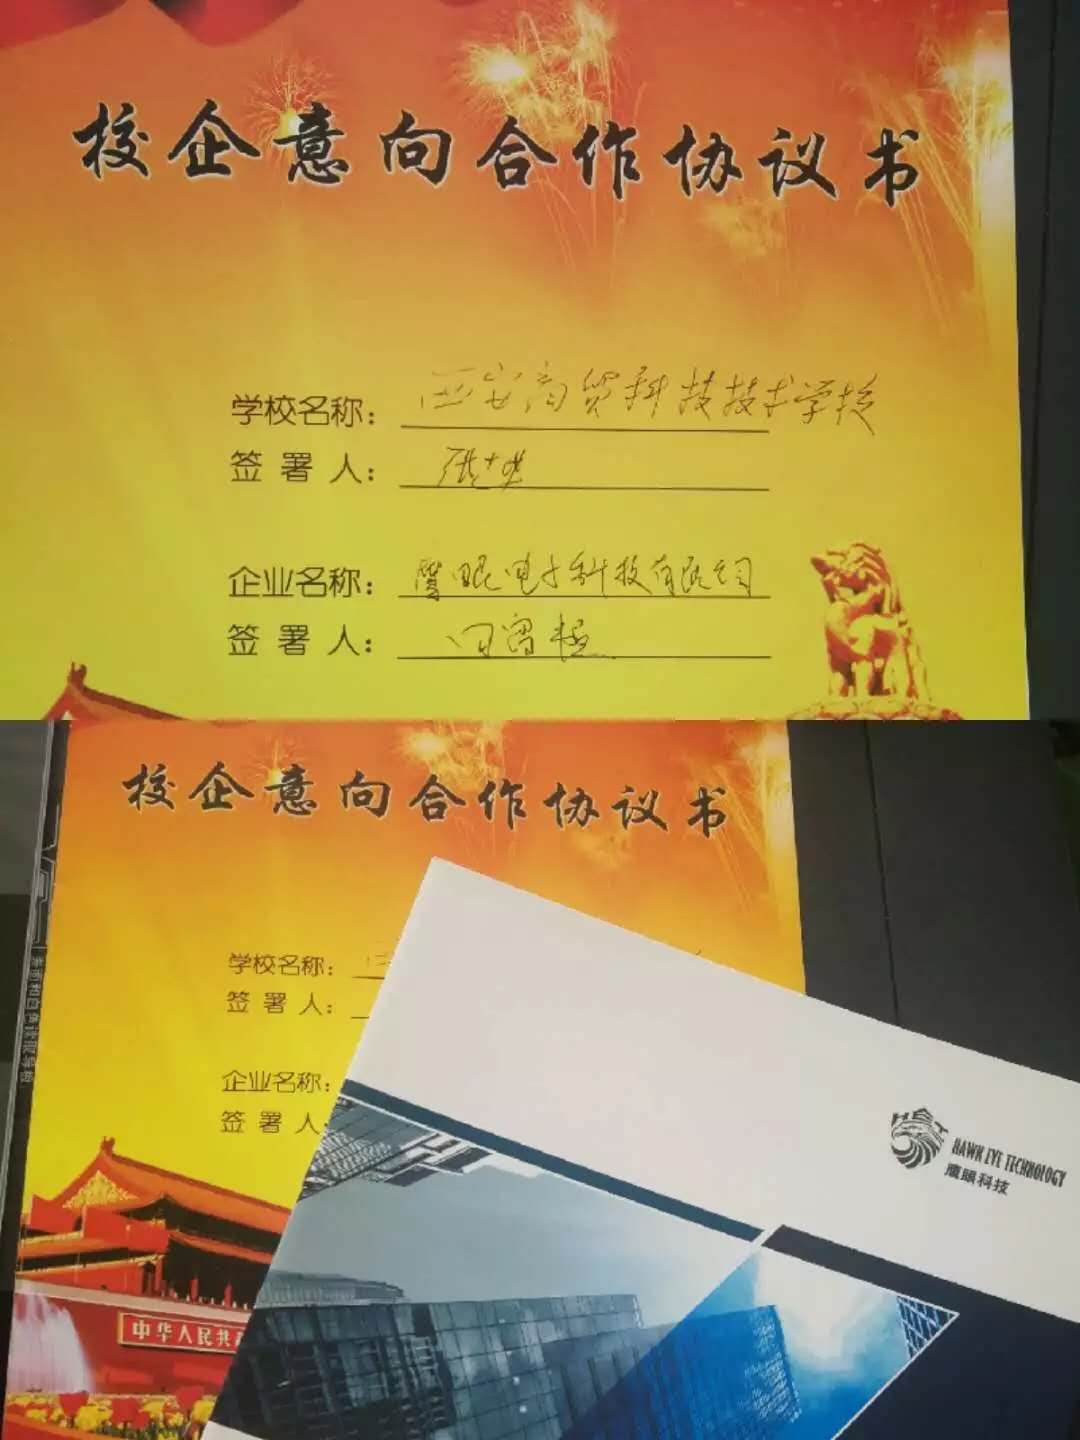 校企意向合作协议书
学校名称： 西安商贸科技技术学校
签 署 人：
企业名称： 鹰眼电子科技有限公司
签 署 人：
校企意向合作协议书
学校名称：
签 署 人：
企业名称：
签 署 人：
中华人民共
HET
HAWK EYE TECHNOLOGY
鹰眼科技